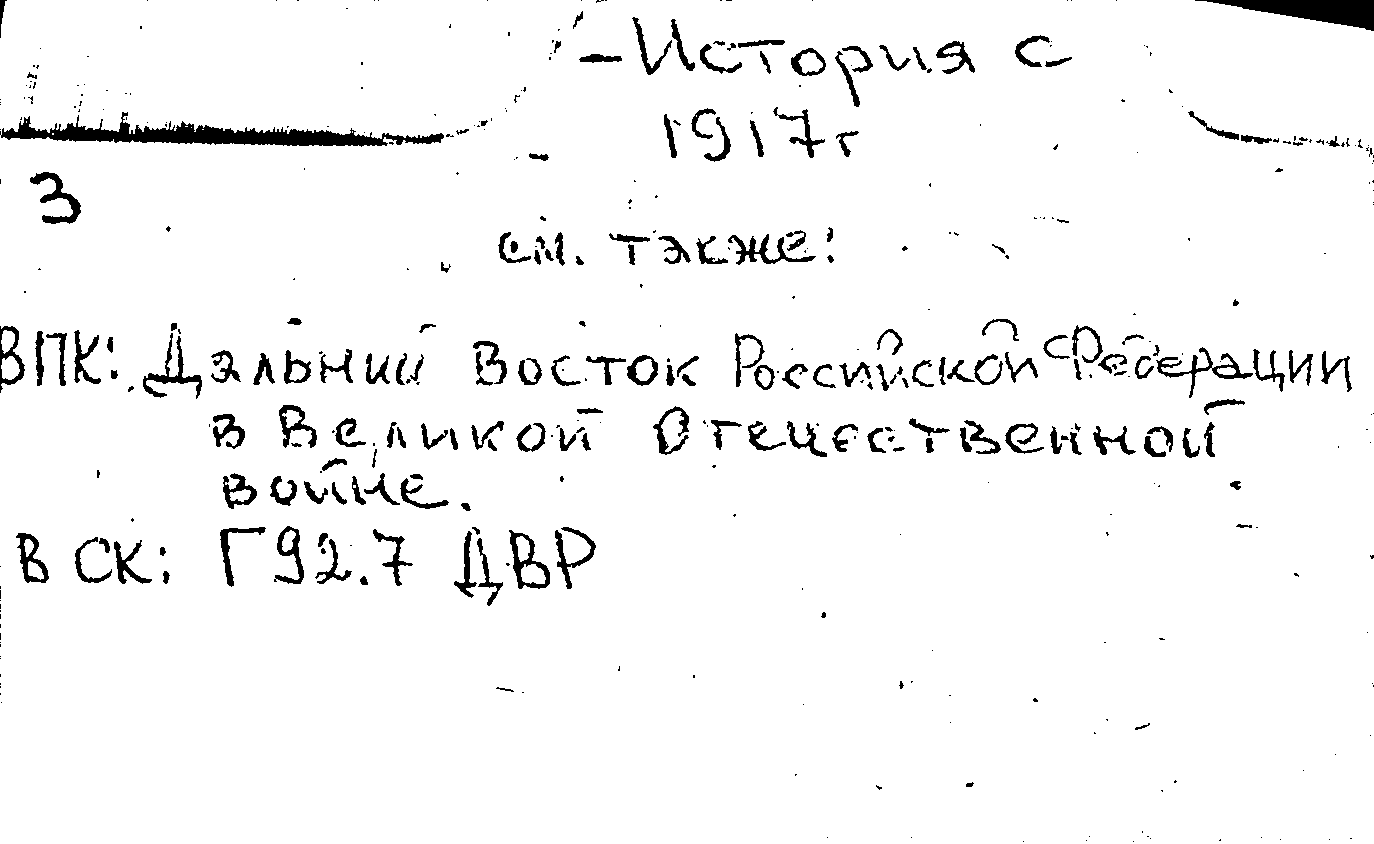 - История с
1917г
3
см. также:
ВПК: Дальний Восток Российской Федерации
в Великой Отечественной
войне.
В СК: Г92.7 ДВР